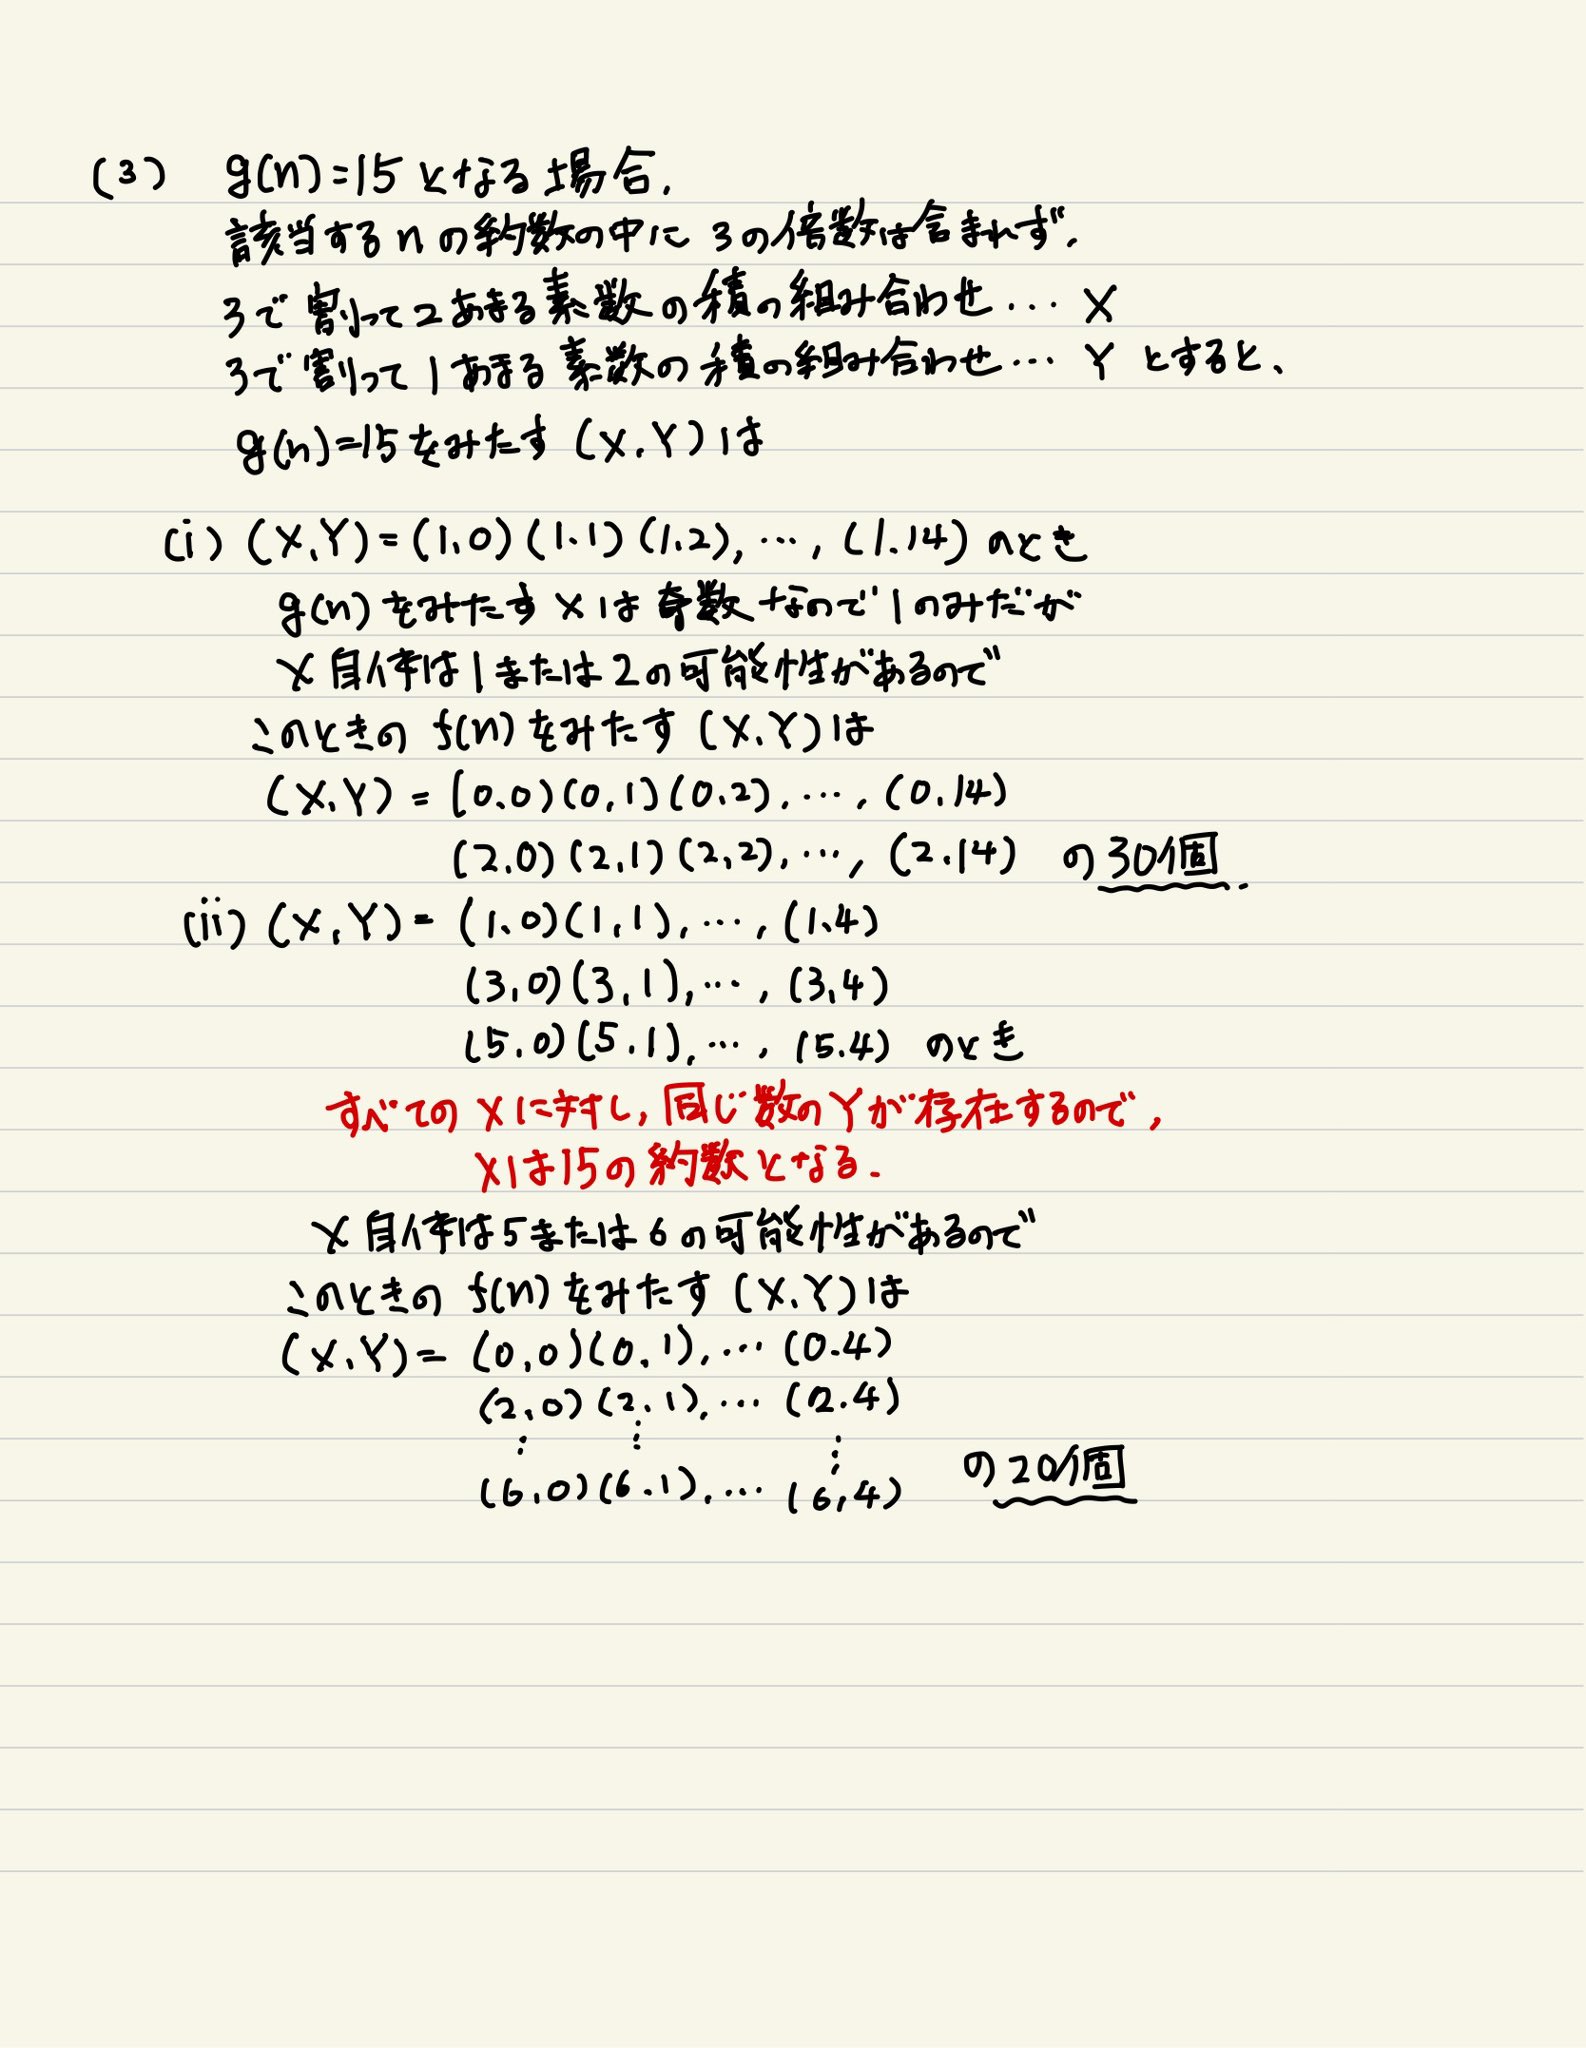 (3) g(n)=15となる場合,
該当するnの約数の中に3の倍数は含まれず,
3で割って2あまる素数の積の組み合わせ… X
3で割って1あまる素数の積の組み合わせ… Y とすると、
g(n)=15をみたす (X,Y)は
(i) (X,Y)=(1,0)(1,1)(1,2),…,(1,14)のとき
g(n)をみたすXは奇数なので1のみだが
X自体は1または2の可能性があるので
このときのf(n)をみたす(X,Y)は
(X,Y)=(0,0)(0,1)(0,2),…,(0,14)
(2,0)(2,1)(2,2),…,(2,14) の30個.
(ii) (X,Y)= (1,0)(1,1),…,(1,4)
(3,0)(3,1),…,(3,4)
(5,0)(5,1),…,(5,4) のとき
すべてのXに対し,同じ数のYが存在するので,
Xは15の約数となる.
X自体は5または6の可能性があるので
このときの f(n)をみたす(X,Y)は
(X,Y)= (0,0)(0,1),…(0,4)
(2,0)(2,1),…(2,4)
⋮ ⋮ ⋮
(6,0)(6,1),…(6,4) の20個